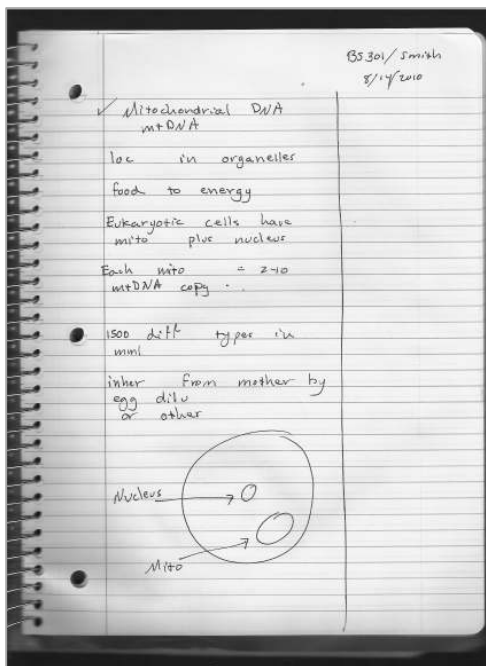 BS 301/Smith
8/14/2010
✓ Mitochondrial DNA
mtDNA
loc in organelles
food to energy
Eukaryotic cells have
mito plus nucleus
Each mito = 2-10
mtDNA copy . .
1500 diff types in
mml
inher from mother by
egg dilu
or other
Nucleus
Mito